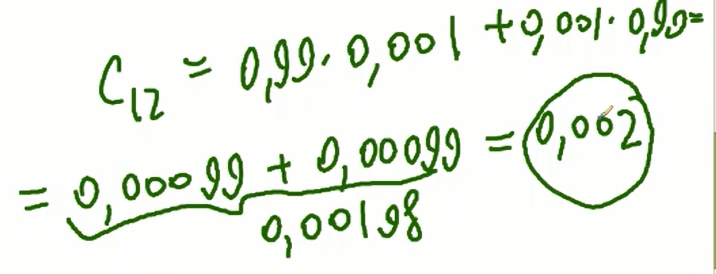 C₁₂ = 0,99 · 0,001 + 0,001 · 0,99 =
= 0,00099 + 0,00099 = 0,002
0,00198